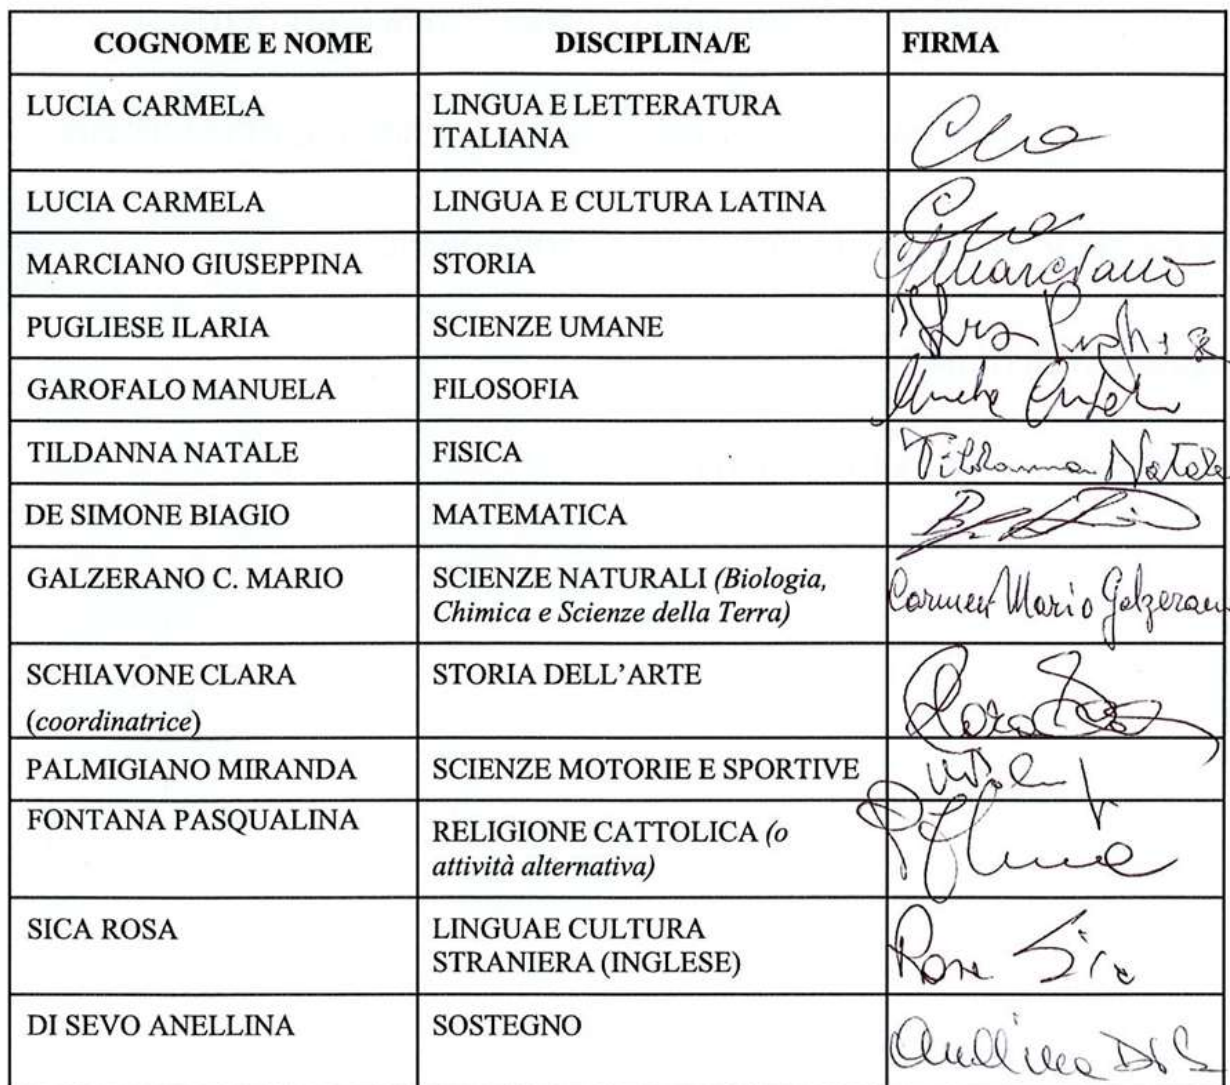 COGNOME E NOME DISCIPLINA/E FIRMA
LUCIA CARMELA LINGUA E LETTERATURA
ITALIANA
LUCIA CARMELA LINGUA E CULTURA LATINA
MARCIANO GIUSEPPINA STORIA GMarciano
PUGLIESE ILARIA SCIENZE UMANE
GAROFALO MANUELA FILOSOFIA
TILDANNA NATALE FISICA Tildanna Natale
DE SIMONE BIAGIO MATEMATICA
GALZERANO C. MARIO SCIENZE NATURALI (Biologia,
Chimica e Scienze della Terra) Carmen Mario Galzerano
SCHIAVONE CLARA STORIA DELL'ARTE
(coordinatrice)
PALMIGIANO MIRANDA SCIENZE MOTORIE E SPORTIVE
FONTANA PASQUALINA RELIGIONE CATTOLICA (o
attività alternativa)
SICA ROSA LINGUAE CULTURA
STRANIERA (INGLESE) Rosa Sica
DI SEVO ANELLINA SOSTEGNO Anellina Di S